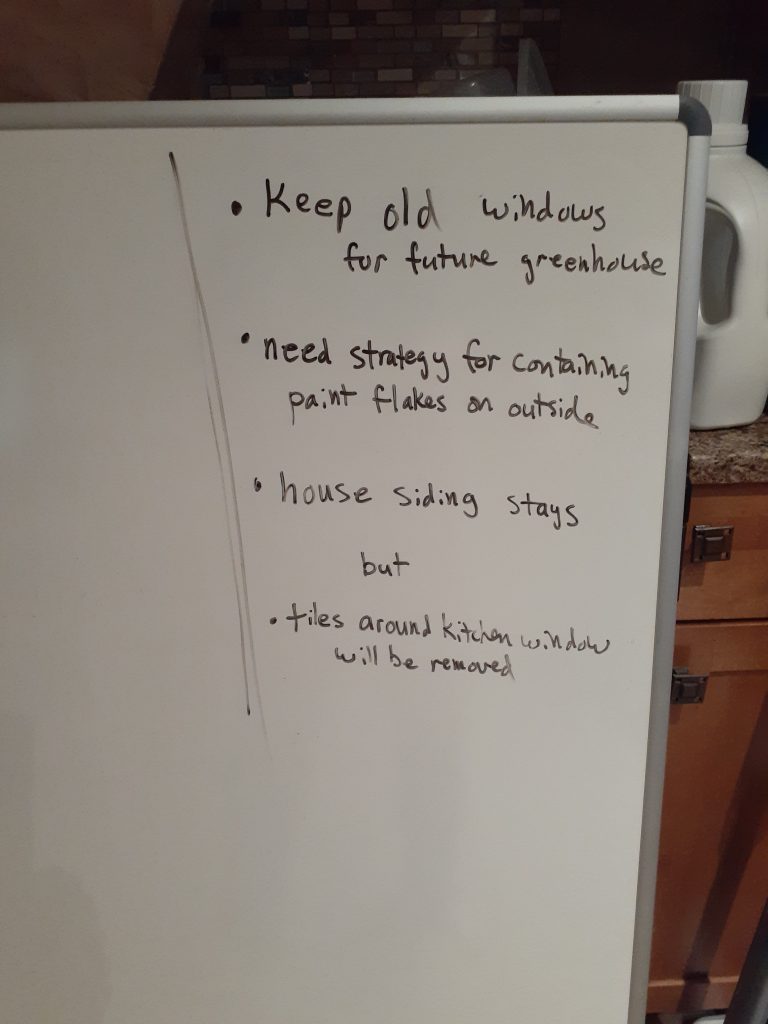 • Keep old windows
for future greenhouse
• need strategy for containing
paint flakes on outside
• house siding stays
but
• tiles around kitchen window
will be removed